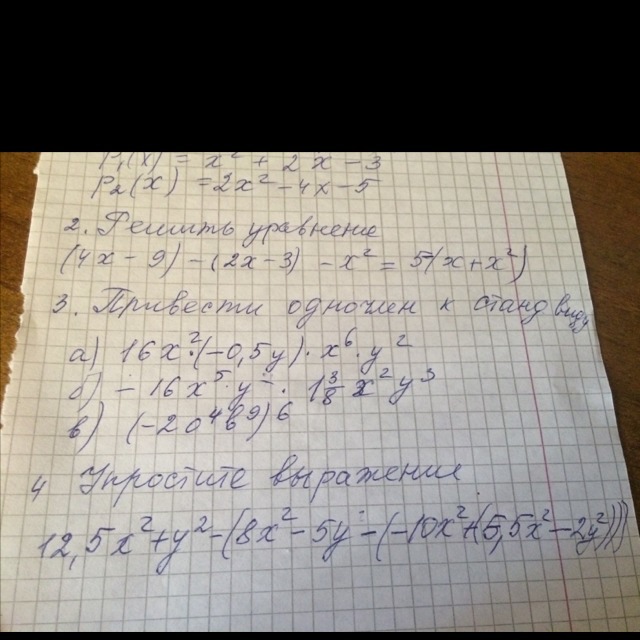 P₁(x) = x² + 2x - 3
P₂(x) = 2x² - 4x - 5
2. Решить уравнение
(4x - 9) - (2x - 3) - x² = 5 - (x + x²)
3. Привести одночлен к станд виду
а) 16x²·(-0,5y)·x⁶·y²
б) - 16x⁵y · 1 3/8 x²y³
в) (-2a⁴b⁹)⁶
4 Упростите выражение
12,5x² + y² - (8x² - 5y² - (-10x² + (5,5x² - 2y²)))